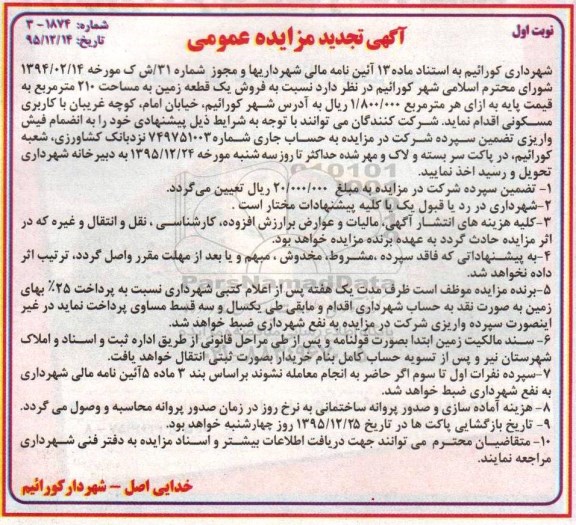 نوبت اول
آگهی تجدید مزایده عمومی
شماره: ۱۸۷۴ - ۳
تاریخ: ۹۵/۱۲/۱۴
شهرداری کورائیم به استناد ماده۱۳ آئین نامه مالی شهرداریها و مجوز شماره ۳۱/ش ک مورخه ۱۳۹۴/۰۲/۱۴
شورای محترم اسلامی شهر کورائیم در نظر دارد نسبت به فروش یک قطعه زمین به مساحت ۲۱۰ مترمربع به
قیمت پایه به ازای هر مترمربع ۱/۸۰۰/۰۰۰ ریال به آدرس شهر کورائیم، خیابان امام، کوچه غریبان با کاربری
مسکونی اقدام نماید. شرکت کنندگان می توانند با توجه به شرایط ذیل پیشنهادی خود را به انضمام فیش
واریزی تضمین سپرده شرکت در مزایده به حساب جاری شماره ۷۴۹۷۵۱۰۰۳ نزدبانک کشاورزی، شعبه
کورائیم، در پاکت سر بسته و لاک و مهر شده حداکثر تا روزسه شنبه مورخه ۱۳۹۵/۱۲/۲۴ به دبیرخانه شهرداری
تحویل و رسید اخذ نمایید.
۱- تضمین سپرده شرکت در مزایده به مبلغ ۲۰/۰۰۰/۰۰۰ ریال تعیین می‌گردد.
۲-شهرداری در رد یا قبول یک یا کلیه پیشنهادات مختار است .
۳-کلیه هزینه های انتشار آگهی، مالیات و عوارض برارزش افزوده، کارشناسی ، نقل و انتقال و غیره که در
اثر مزایده حادث گردد به عهده برنده مزایده خواهد بود.
۴-به پیشنهاداتی که فاقد سپرده ،مشروط، مخدوش ، مبهم و یا بعد از مهلت مقرر واصل گردد، ترتیب اثر
داده نخواهد شد.
۵-برنده مزایده موظف است ظرف مدت یک هفته پس از اعلام کتبی شهرداری نسبت به پرداخت ۲۵٪ بهای
زمین به صورت نقد به حساب شهرداری اقدام و مابقی طی یکسال و سه قسط مساوی پرداخت نماید در غیر
اینصورت سپرده واریزی شرکت در مزایده به نفع شهرداری ضبط خواهد شد.
۶- سند مالکیت زمین ابتدا بصورت قولنامه و پس از طی مراحل قانونی از طریق اداره ثبت و اسناد و املاک
شهرستان نیر و پس از تسویه حساب کامل بنام خریدار بصورت ثبتی انتقال خواهد یافت.
۷-سپرده نفرات اول تا سوم اگر حاضر به انجام معامله نشوند براساس بند ۳ ماده ۵آئین نامه مالی شهرداری
به نفع شهرداری ضبط خواهد شد.
۸- هزینه آماده سازی و صدور پروانه ساختمانی به نرخ روز در زمان صدور پروانه محاسبه و وصول می گردد.
۹- تاریخ بازگشایی پاکت ها در تاریخ ۱۳۹۵/۱۲/۲۵ روز چهارشنبه خواهد بود.
۱۰- متقاضیان محترم می توانند جهت دریافت اطلاعات بیشتر و اسناد مزایده به دفتر فنی شهرداری
مراجعه نمایند.
خدایی اصل – شهردار کورائیم